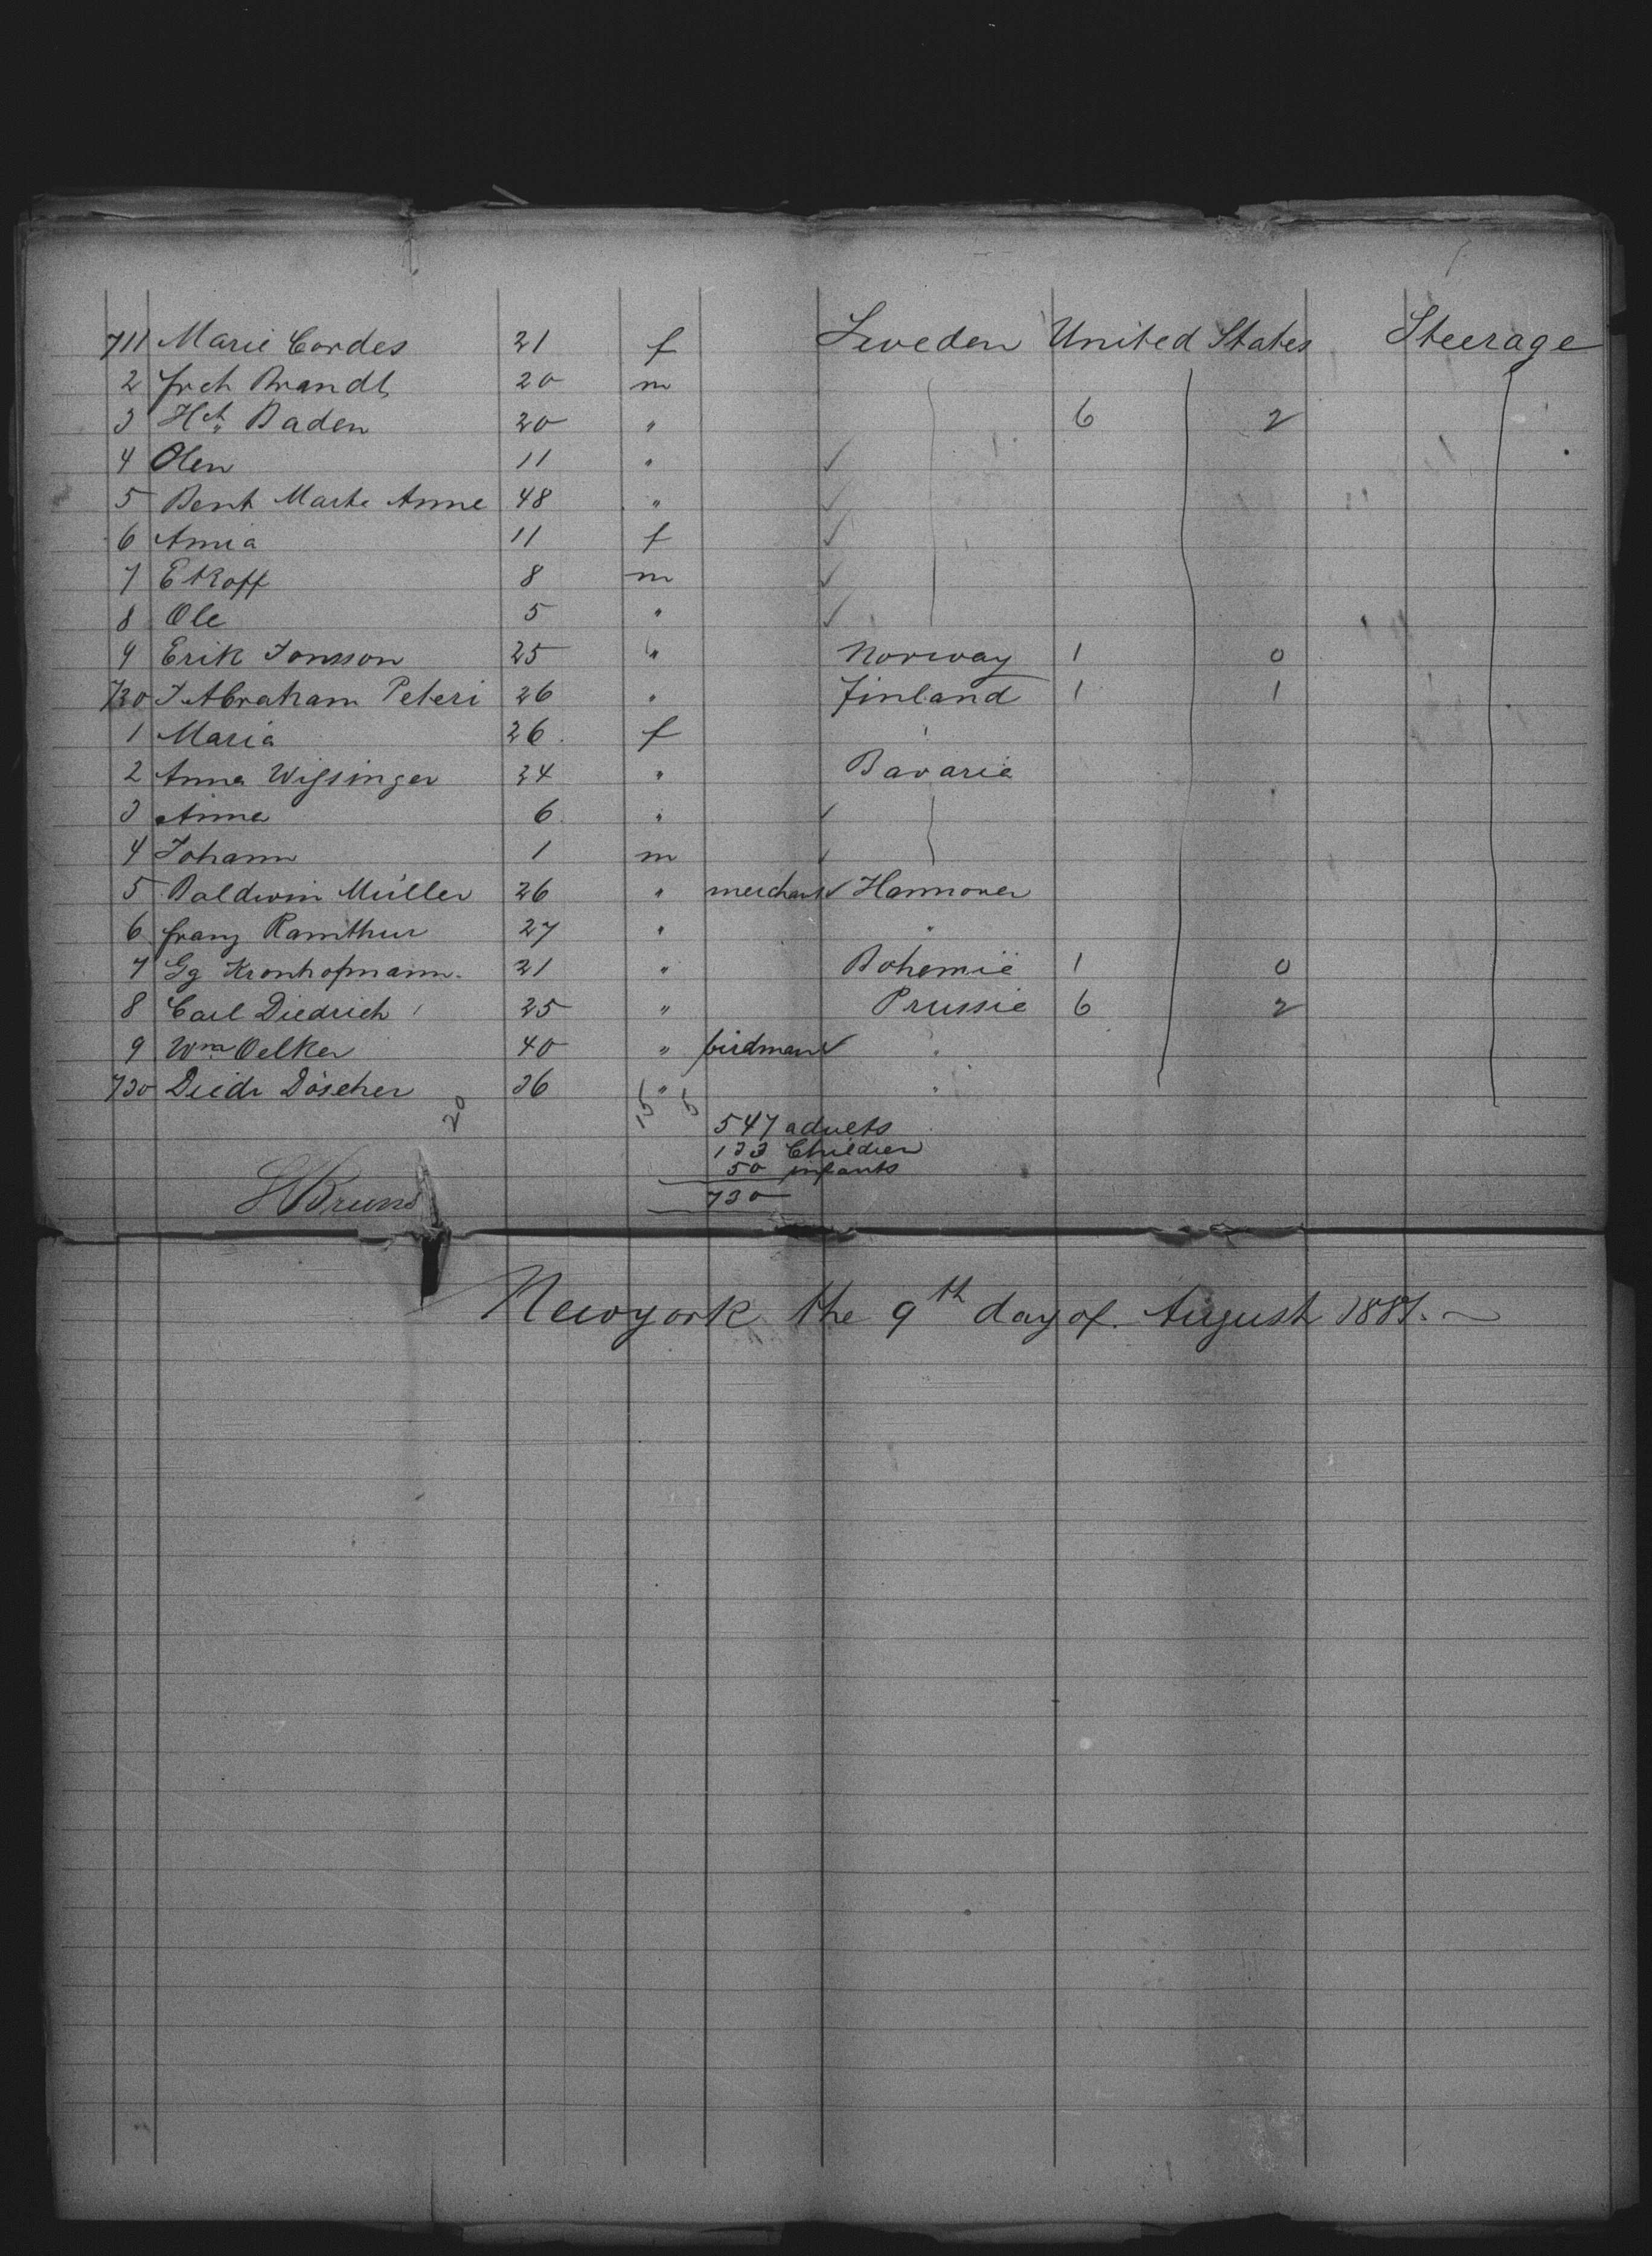 711 Marie Cordes 21 f Sweden United States Steerage
2 frch Brandt 20 m
3 Hch Baden 20 " 6 2
4 Olen 11 " ✓
5 Bent Marte Anne 48 " ✓
6 Anna 11 f ✓
7 E Roff 8 m ✓
8 Ole 5 " ✓
9 Erik Jonsson 25 " Norway 1 0
720 J Abraham Peteri 26 " Finland 1 1
1 Maria 26 f "
2 Anna Wissinger 24 " Bavarie
3 Anna 6 " ✓
4 Johann 1 m ✓
5 Baldwin Müller 26 " merchant ✓ Hannover
6 franz Ramthur 27 " "
7 Gg Kronhofmann 21 " Bohemie 1 0
8 Carl Diedrich 25 " Prussie 6 2
9 Wm Oelker 40 " birdman ✓ "
730 Diedr Döscher 36 " "
20 15 5
547 adults
133 Children
50 infants
730
H Bruns
Newyork the 9th day of August 1881.